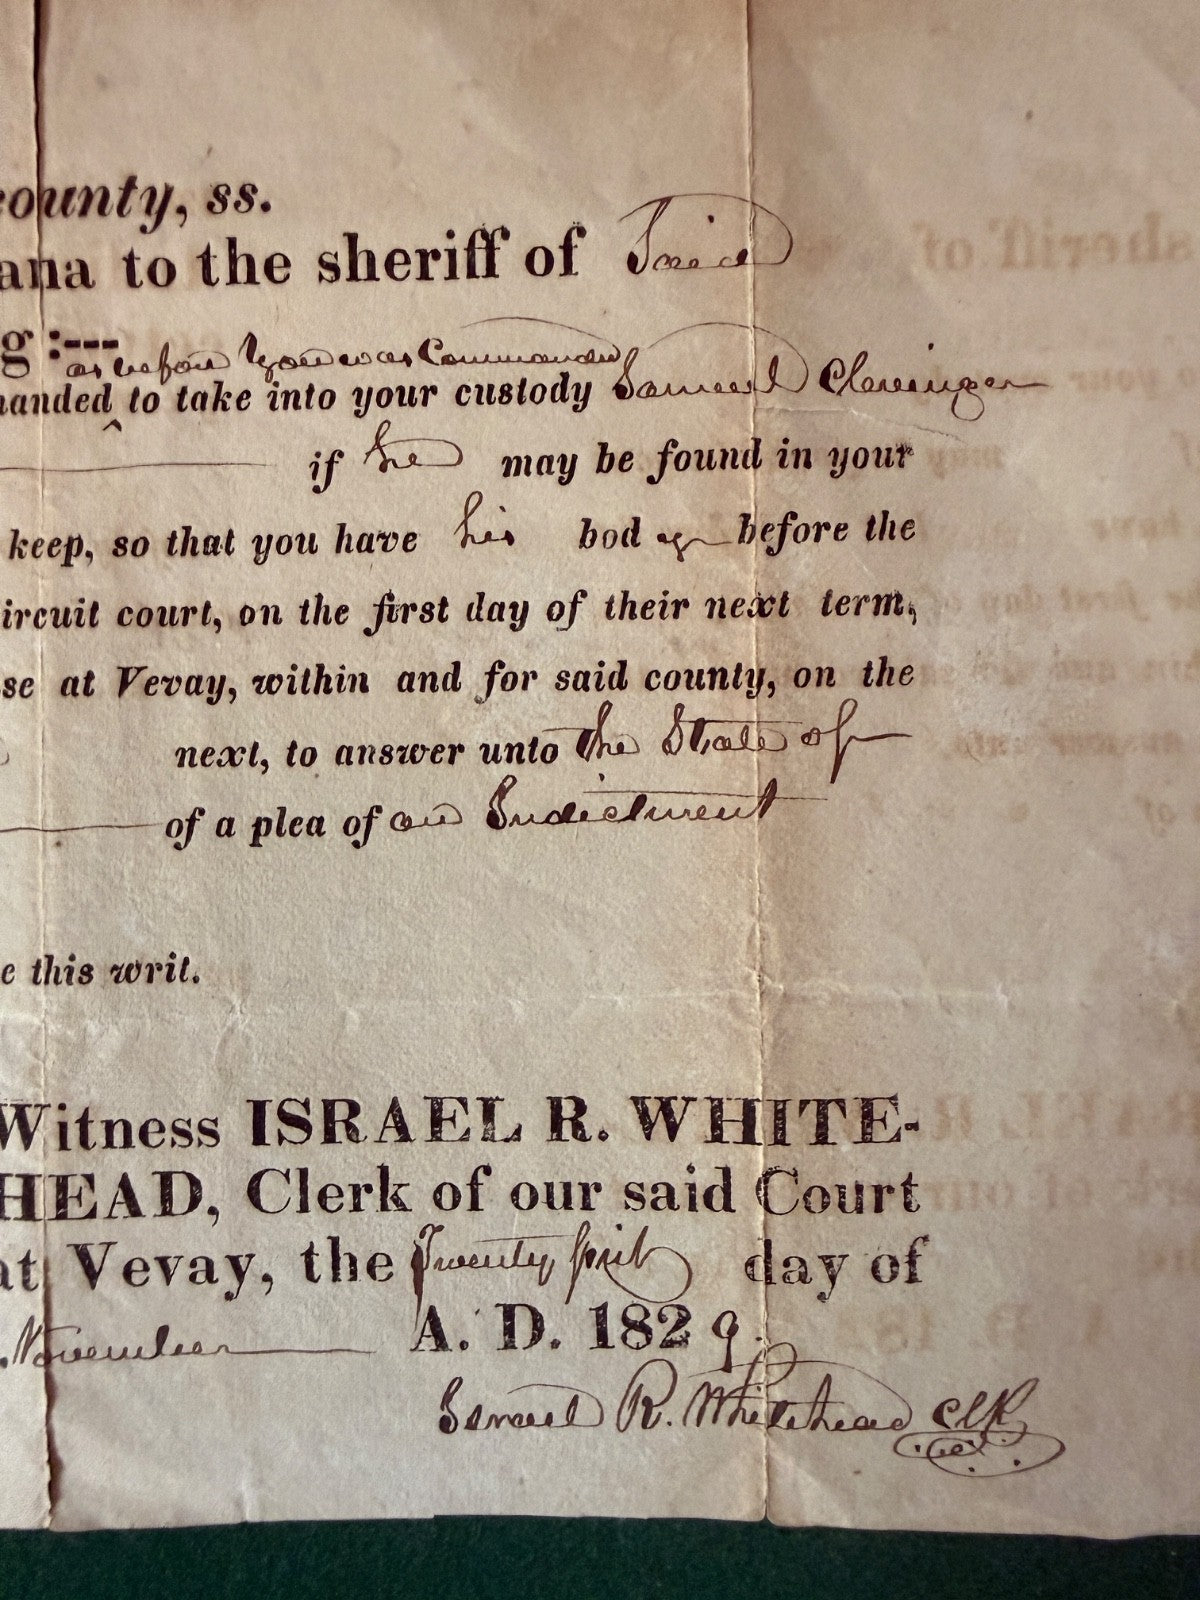 county, ss.
ana to the sheriff of Said
g :---
as before you was Commanded
manded ‸ to take into your custody Samuel Clevinger
if he may be found in your
keep, so that you have his body before the
ircuit court, on the first day of their next term,
se at Vevay, within and for said county, on the
next, to answer unto the State of
of a plea of an Indictment
e this writ.
Witness ISRAEL R. WHITE-
HEAD, Clerk of our said Court
at Vevay, the Twenty first day of
November A. D. 1829.
Israel R. Whitehead Clk